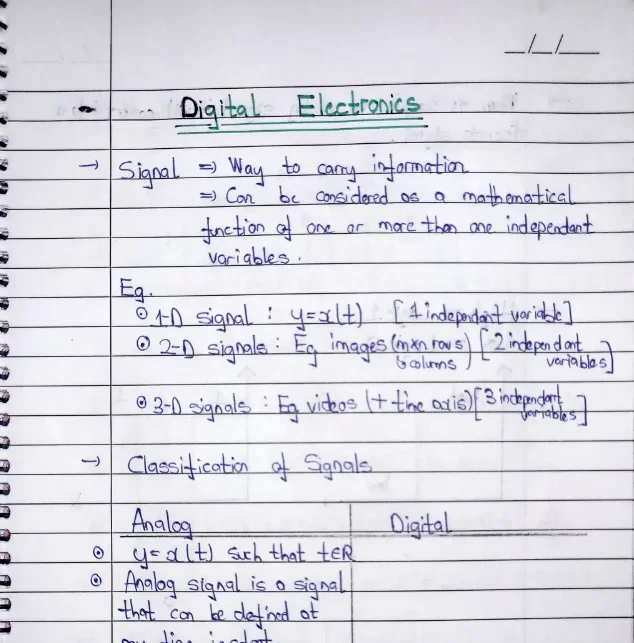 _/_/_
Digital Electronics
→ Signal ⇒ Way to carry information
⇒ Can be considered as a mathematical
function of one or more than one independant
variables.
Eg.
⊙ 1-D signal : y=x(t) [1 independant variable]
⊙ 2-D signals : Eg images (mxn rows & colums) [2 independant variables]
⊙ 3-D signals : Eg videos (+ time axis) [3 independant variables]
→ Classification of Signals
Analog Digital
⊙ y= x(t) such that t∈R
⊙ Analog signal is a signal
that can be defined at
any time instant